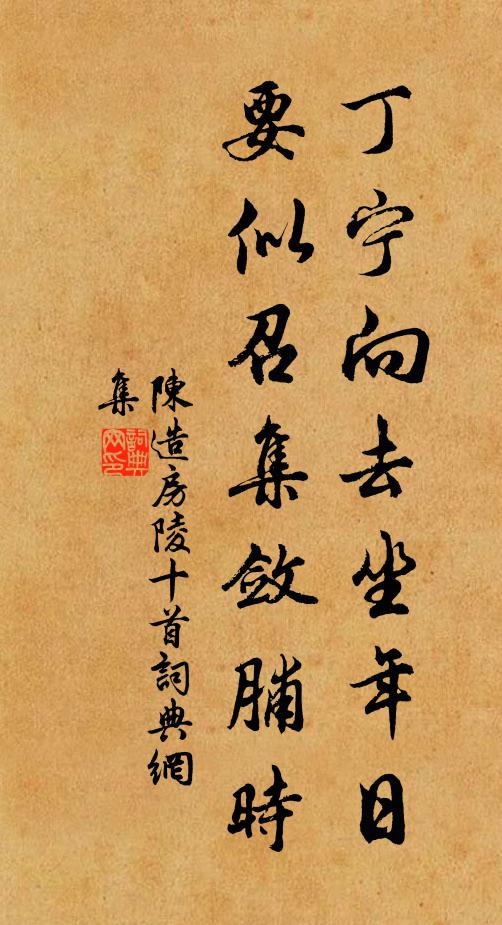 丁宁向去坐年日
要似召集斂脯時
陳造房陵十首詞典網
集
詞典
网印